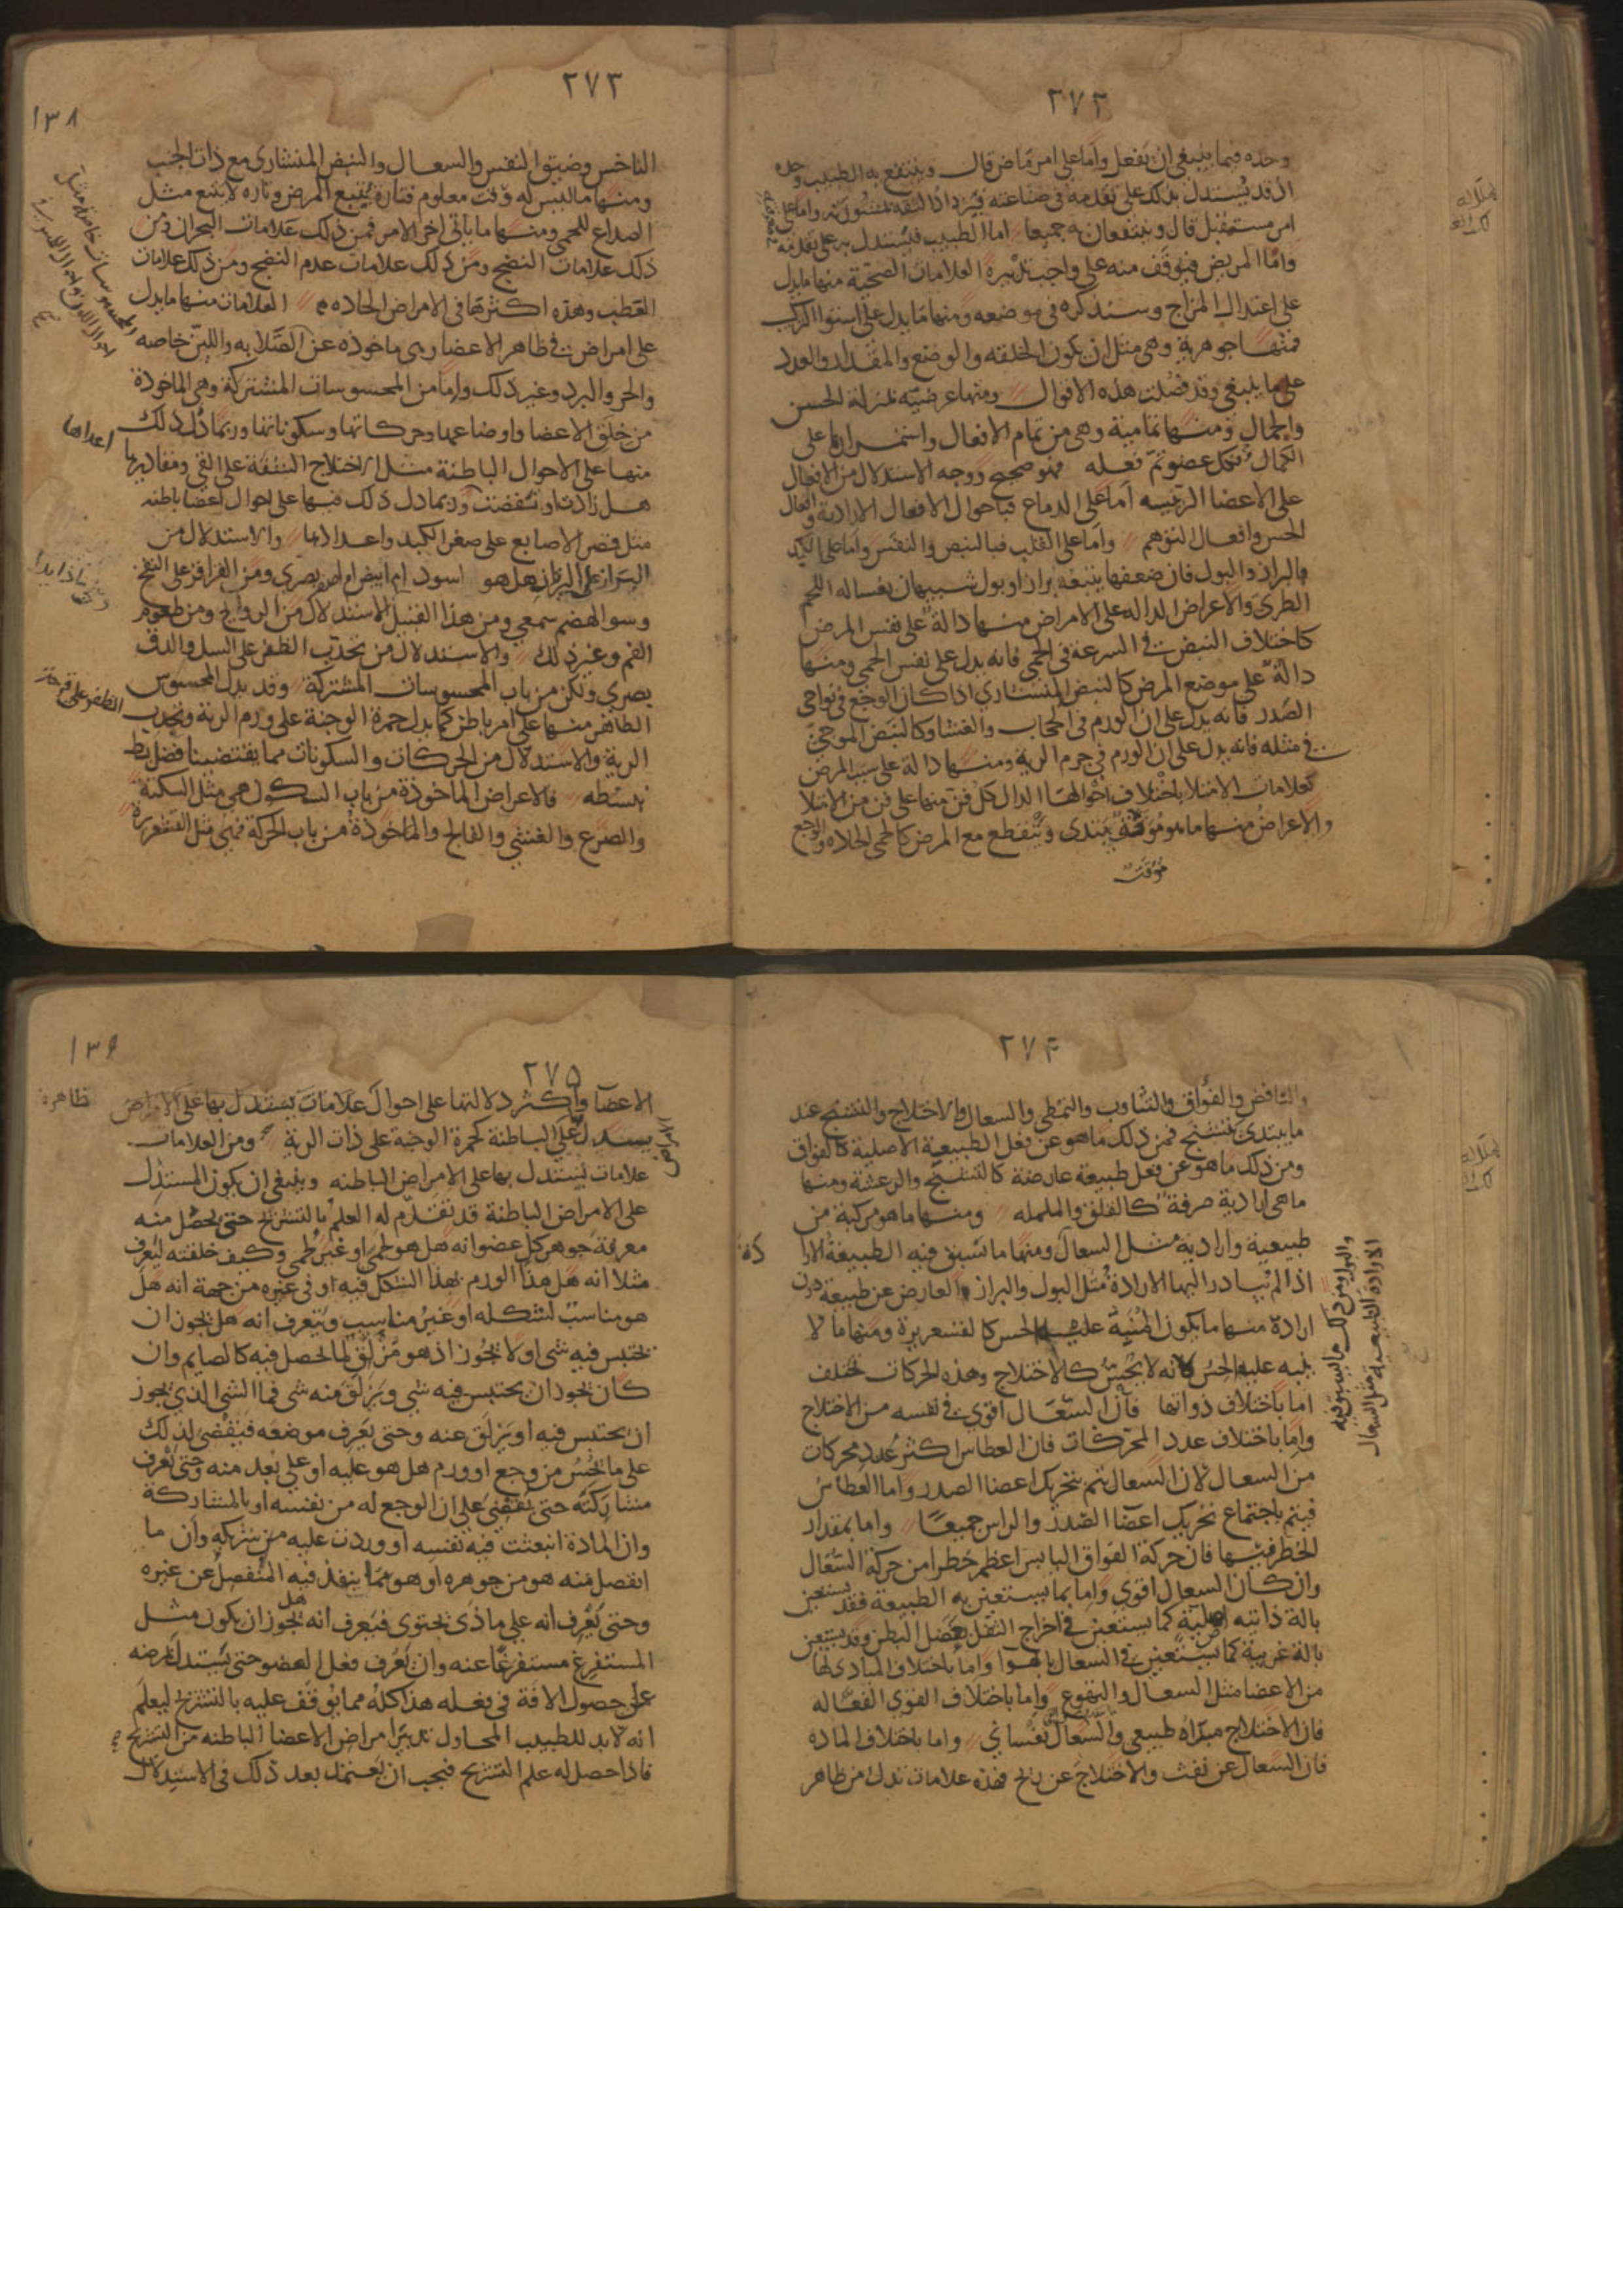 ٢٧٢
وحده فيما ينبغي ان يفعل واما على امر ماض قال وينتفع به الطبيب وحده
اذ قد يستدل بذلك على تقدمه في صناعته فيزداد الثقه بمشورته واما على
امر مستقبل قال وينتفعان به جميعا اما الطبيب فيستدل به على تقدمه
واما المريض فيوقف منه على واجب تدبيره العلامات الصحية منها ما يدل
على اعتدال المزاج وسنذكره في موضعه ومنها ما يدل على استوا التركيب
فمنها جوهرية وهي مثل ان تكون الخلقه والوضع والمقدار والعدد
على ما ينبغي وقد فصلت هذه الاقوال ومنها عرضيه بمنزلة الحسن
والجمال ومنها تمامية وهي من تمام الافعال واستمرارها على
الكمال فكل عضو تم فعله فهو صحيح ووجه الاستدلال من الافعال
على الاعضا الرئيسه اما على الدماغ فباحوال الافعال الارادية وافعال
الحس وافعال التوهم واما على القلب فبالنبض والنفس واما على الكبد
فالبراز والبول فان ضعفها يتبعه براز او بول شبيهان بغساله اللحم
الطري والاعراض الداله على الامراض منها دالة على نفس المرض
كاختلاف النبض في السرعة في الحمى فانه يدل على نفس الحمى ومنها
دالة على موضع المرض كالنبض المنشاري اذا كان الوجع في نواحي
الصدر فانه يدل على ان الورم في الحجاب والغشا وكالنبض الموجي
في مثله فانه يدل على ان الورم في جرم الرية ومنها دالة على سبب المرض
كعلامات الامتلا باختلاف احوالها الدال كل فن منها على فن من الامتلا
والاعراض منها ما هو موقت يبتدي وينقطع مع المرض كالحمى الحاده والوجع
موقت
٢٧٣
١٣٨
الناخس وضيق النفس والسعال والنبض المنشاري مع ذات الجنب
ومنها ما ليس له وقت معلوم فتارة يتبع المرض وتاره لا يتبع مثل
الصداع للحمى ومنها ما ياتي اخر الامر فمن ذلك علامات البحران ومن
ذلك علامات النضج ومن ذلك علامات عدم النضج ومن ذلك علامات
العطب وهذه اكثرها في الامراض الحاده العلامات منها ما يدل
على امراض في ظاهر الاعضا وهي ماخوذه عن الصلابه واللين خاصه
والحر والبرد وغير ذلك واما من المحسوسات المشتركة وهي الماخوذة
من خلق الاعضا واوضاعها وحركاتها وسكوناتها وربما دل ذلك
منها على الاحوال الباطنة مثل اختلاج الشفة على القي ومقاديرها
اعدادها
هل زادت او نقضت وربما دل ذلك منها على احوال اعضا باطنه
مثل قصر الاصابع على صغر الكبد واعدادها والاستدلال من
البراز على اليرقان هل هو اسود ام ابيض ام اصفر بصري ومن القراقر على النفخ
وسو الهضم سمعي ومن هذا القبيل الاستدلال من الروايح ومن طعوم
الفم وغير ذلك والاستدلال من تحدب الظفر على السل والدق
بصري ولكن من باب المحسوسات المشتركة وقد يدل المحسوس
الظاهر منها على امر باطن كما يدل حمرة الوجنة على ورم الرية وتحدب
الظفر على قرحة
الرية والاستدلال من الحركات والسكونات مما يقتضينا فضل بسط
نبسطه فالاعراض الماخوذة من باب السكون هي مثل السكتة
والصرع والغشي والفالج والماخوذة من باب الحركة فهي مثل القشعريرة
٢٧٤
والنافض والفواق والتثاوب والتمطي والسعال والاختلاج والتشنج عند
ما يبتدي يتشنج فمن ذلك ما هو عن فعل الطبيعية الاصلية كالفواق
ومن ذلك ما هو عن فعل طبيعة عارضة كالتشنج والرعشة ومنها
ما هي ارادية صرفة كالقلق والململه ومنها ما هو مركبة من
طبيعية وارادية مثل السعال ومنها ما تسبق فيه الطبيعة الارا
دة
اذا لم يبادر اليها الارادة مثل البول والبراز والعارض عن طبيعة دون
ارادة منها ما يكون المنبه عليها الحس كالقشعريرة ومنها ما لا
ينبه عليه الحس لانه لا يحس كالاختلاج وهذه الحركات تختلف
اما باختلاف ذواتها فان السعال اقوى في نفسه من الاختلاج
واما باختلاف عدد المحركات فان العطاس اكثر عدد محركات
من السعال لان السعال يتم بتحريك اعضا الصدر واما العطاس
فيتم باجتماع تحريك اعضا الصدر والراس جميعا واما بمقدار
الخطر فيها فان حركة الفواق اليابس اعظم خطرا من حركة السعال
وان كان السعال اقوى واما بما يستعين به الطبيعة فقد يستعين
بالة ذاتيه اصلية كما يستعين في اخراج الثقل بعضل البطن وقد يستعين
بالة غريبة كما يستعين في السعال بالهوا واما باختلاف المبادى لها
من الاعضا مثل السعال والتهوع واما باختلاف القوى الفعاله
فان الاختلاج مبداه طبيعي والسعال نفساني واما باختلاف الماده
فان السعال عن نفث والاختلاج عن ريح فهذه علامات تدل من ظاهر
٢٧٥
١٣٩
الاعضا واكثر دلالتها على احوال علامات يستدل بها على الامراض
ظاهرة
يستدل على الباطنة كحمرة الوجنة على ذات الرية ومن العلامات
علامات يستدل بها على الامراض الباطنه وينبغي ان يكون المستدل
على الامراض الباطنة قد تقدم له العلم بالتشريح حتى يحصل منه
معرفة جوهر كل عضو انه هل هو لحمي او غير لحمي وكيف خلقته ليعرف
مثلا انه هل هذا الورم بهذا الشكل فيه او في غيره من جهة انه هل
هو مناسب لشكله او غير مناسب ويتعرف انه هل يجوز ان
يحتبس فيه شي او لا يجوز اذ هو مزلق لما يحصل فيه كالصايم وان
كان يجوز ان يحتبس فيه شي ويزلق منه شي فما الشي الذي يجوز
ان يحتبس فيه او يزلق عنه وحتى يعرف موضعه فيقضى لذلك
على ما يحس من وجع او ورم هل هو عليه او على بعد منه وحتى يعرف
مشاركته حتى يقضي على ان الوجع له من نفسه او بالمشاركة
وان المادة انبعثت فيه نفسه او وردت عليه من شريكه وان ما
انفصل منه هو من جوهره او هو مما ينفذ فيه المنفصل عن غيره
وحتى يعرف انه على ماذى يحتوى فيعرف انه هل يجوز ان يكون مثل
المستفرغ مستفرغا عنه وان يعرف فعل العضو حتى يستدل على مرضه
على حصول الافة في فعله هذا كله مما يوقف عليه بالتشريح ليعلم
انه لابد للطبيب المحاول تدبير امراض الاعضا الباطنه من التشريح
فاذا حصل له علم التشريح فيجب ان يعتمد بعد ذلك في الاستدلال